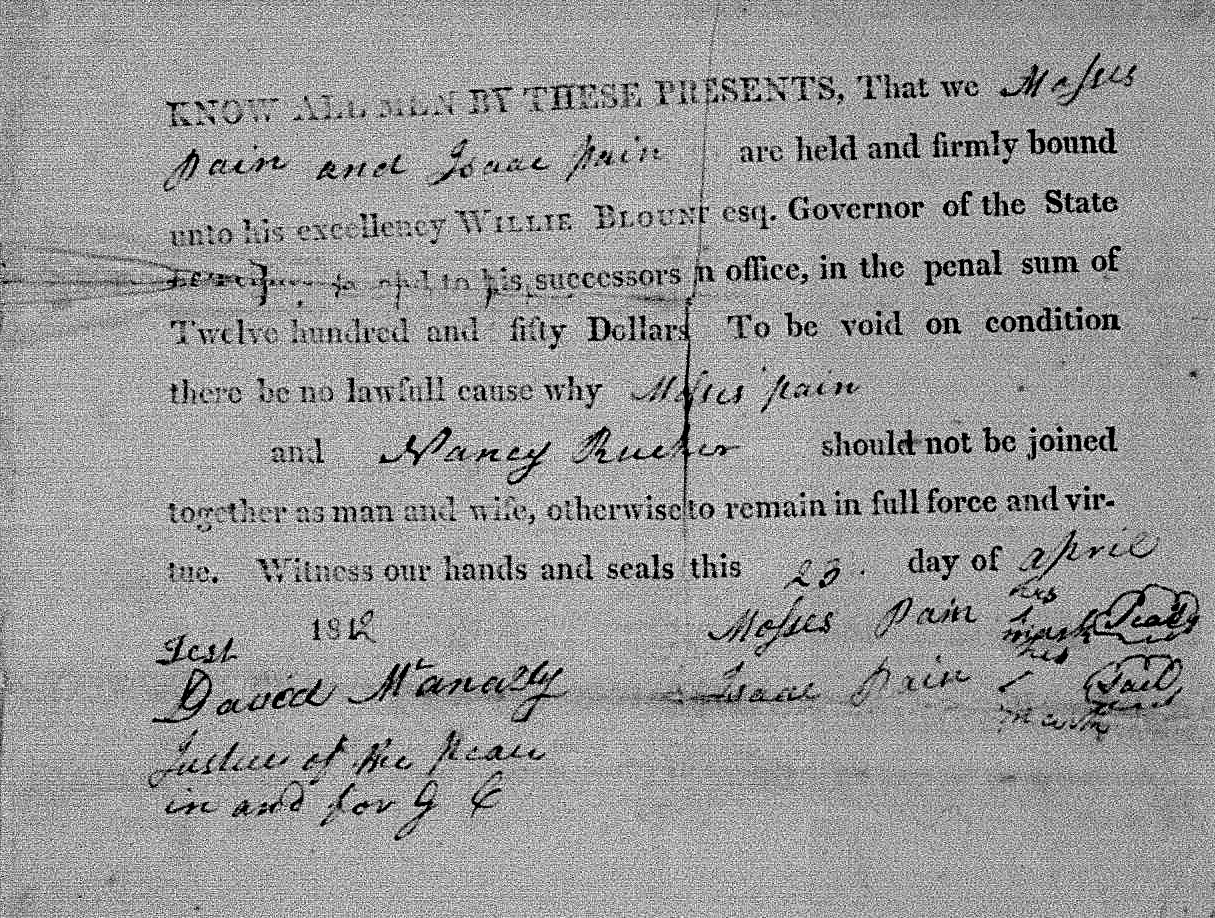 KNOW ALL MEN BY THESE PRESENTS, That we Mosses
pain and Isaac pain are held and firmly bound
unto his excellency WILLIE BLOUNT esq. Governor of the State
to his successors in office, in the penal sum of
Twelve hundred and fifty Dollars To be void on condition
there be no lawfull cause why Moses pain
and Nancy Rucker should not be joined
together as man and wife, otherwise to remain in full force and vir-
tue. Witness our hands and seals this 23. day of april
1812
his
Mosses Pain mark Seal
Test
his
David Isaac Pain mark Seal
Justice of the peace
in and for G C